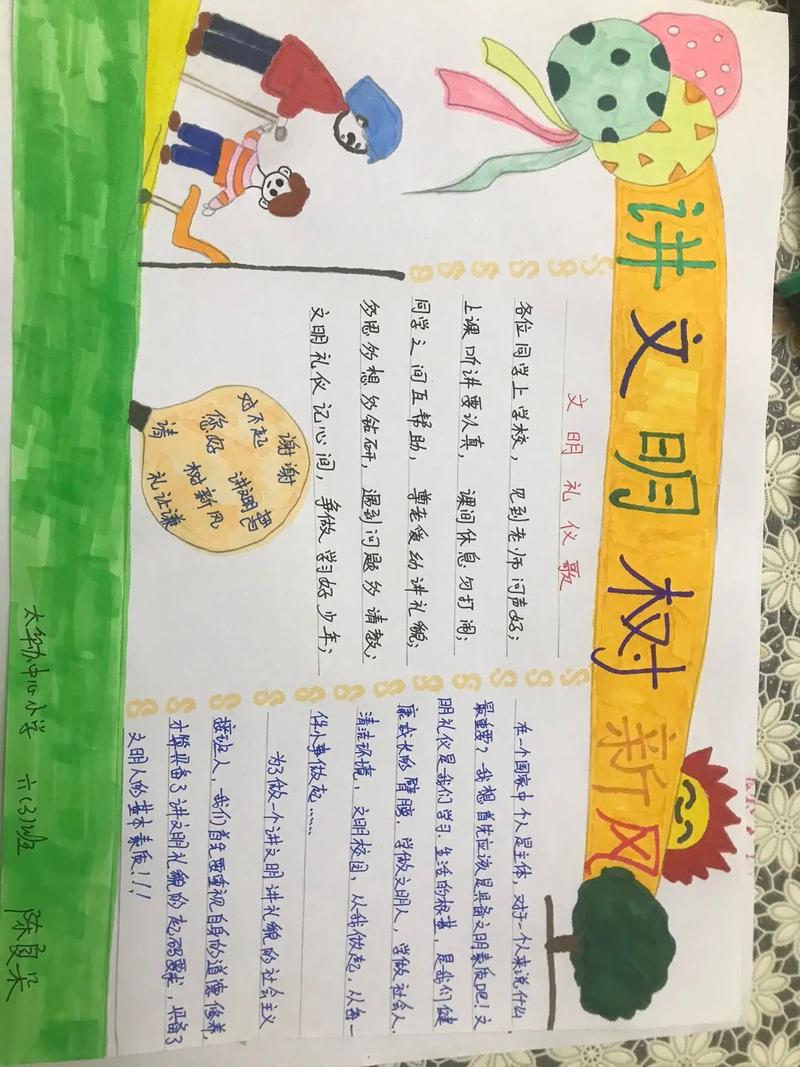 讲文明树新风
文明礼仪歌
各位同学上学校，见到老师问声好；
上课听讲要认真，课间休息勿打闹；
同学之间互帮助，尊老爱幼讲礼貌；
多思多想多钻研，遇到问题多请教；
文明礼仪记心间，争做学习好少年；
谢谢
对不起
你好
讲文明
请
树新风
礼让谦
在一个国家中个人是主体，对于一个人来说什么
最重要？我想首先应该是具备文明素质吧！文
明礼仪是我们学习、生活的根基，是我们健
康成长的臂膀，学做文明人，学做社会人，
清洁环境，文明校园，从我做起，从每一
件小事做起……
为了做一个讲文明讲礼貌的社会主义
接班人，我们首先要重视自身的道德修养，
才算具备了讲文明礼貌的起码要求，具备了
文明人的基本素质！！！
中心小学 六(3)班